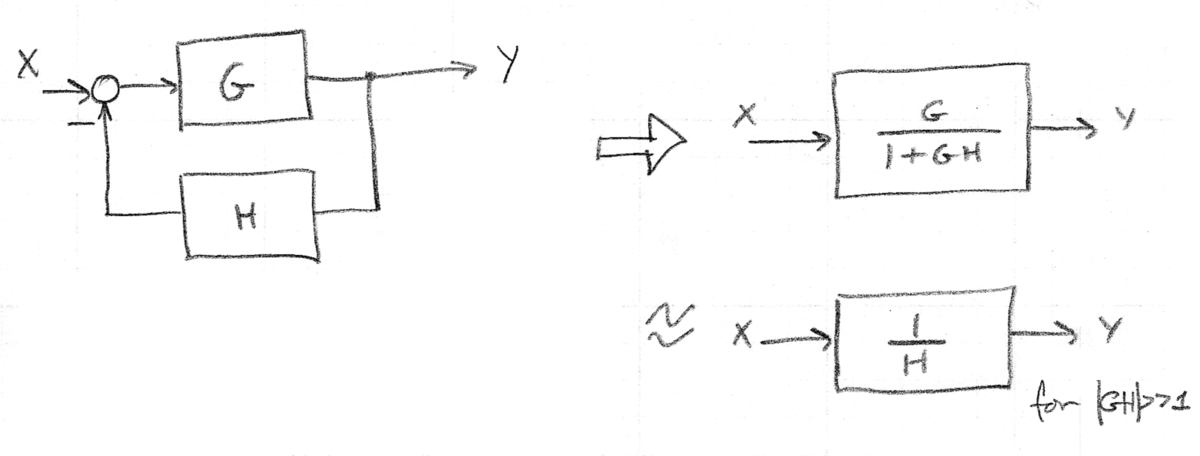 X
−
G
Y
H
X
G
1+GH
Y
≈
X
1
H
Y
for |GH|>>1